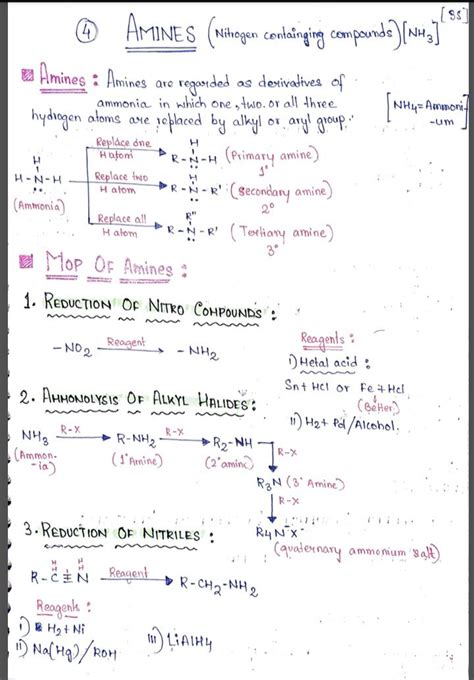 [SS]
④ AMINES (Nitrogen containging compounds) [NH3]
Amines : Amines are regarded as derivatives of
ammonia in which one, two. or all three
hydrogen atoms are replaced by alkyl or aryl group.
[NH4=Ammoni-
-um]
Replace one
H atom
H
R-N-H (Primary amine)
1°
H
H-N-H
(Ammonia)
Replace two
H atom
H
R-N-R' (Secondary amine)
2°
Replace all
H atom
R"
R-N-R' (Tertiary amine)
3°
MOP OF Amines :
1. REDUCTION OF NITRO COMPOUNDS :
-NO2 Reagent -NH2
Reagents :
i) Metal acid :
Sn + HCl or Fe + HCl
(Better)
ii) H2 + Pd/Alcohol.
2. AMMONOLYSIS OF ALKYL HALIDES :
NH3 R-X R-NH2 R-X R2-NH
(Ammon-
-ia)
(1° Amine)
(2° amine)
R-X
R3N (3° Amine)
R-X
R4N X-
(quaternary ammonium salt)
3. REDUCTION OF NITRILES :
H H
R-C≡N Reagent R-CH2-NH2
H H
Reagents :
i) H2 + Ni
ii) Na(Hg)/ROH
iii) LiAlH4